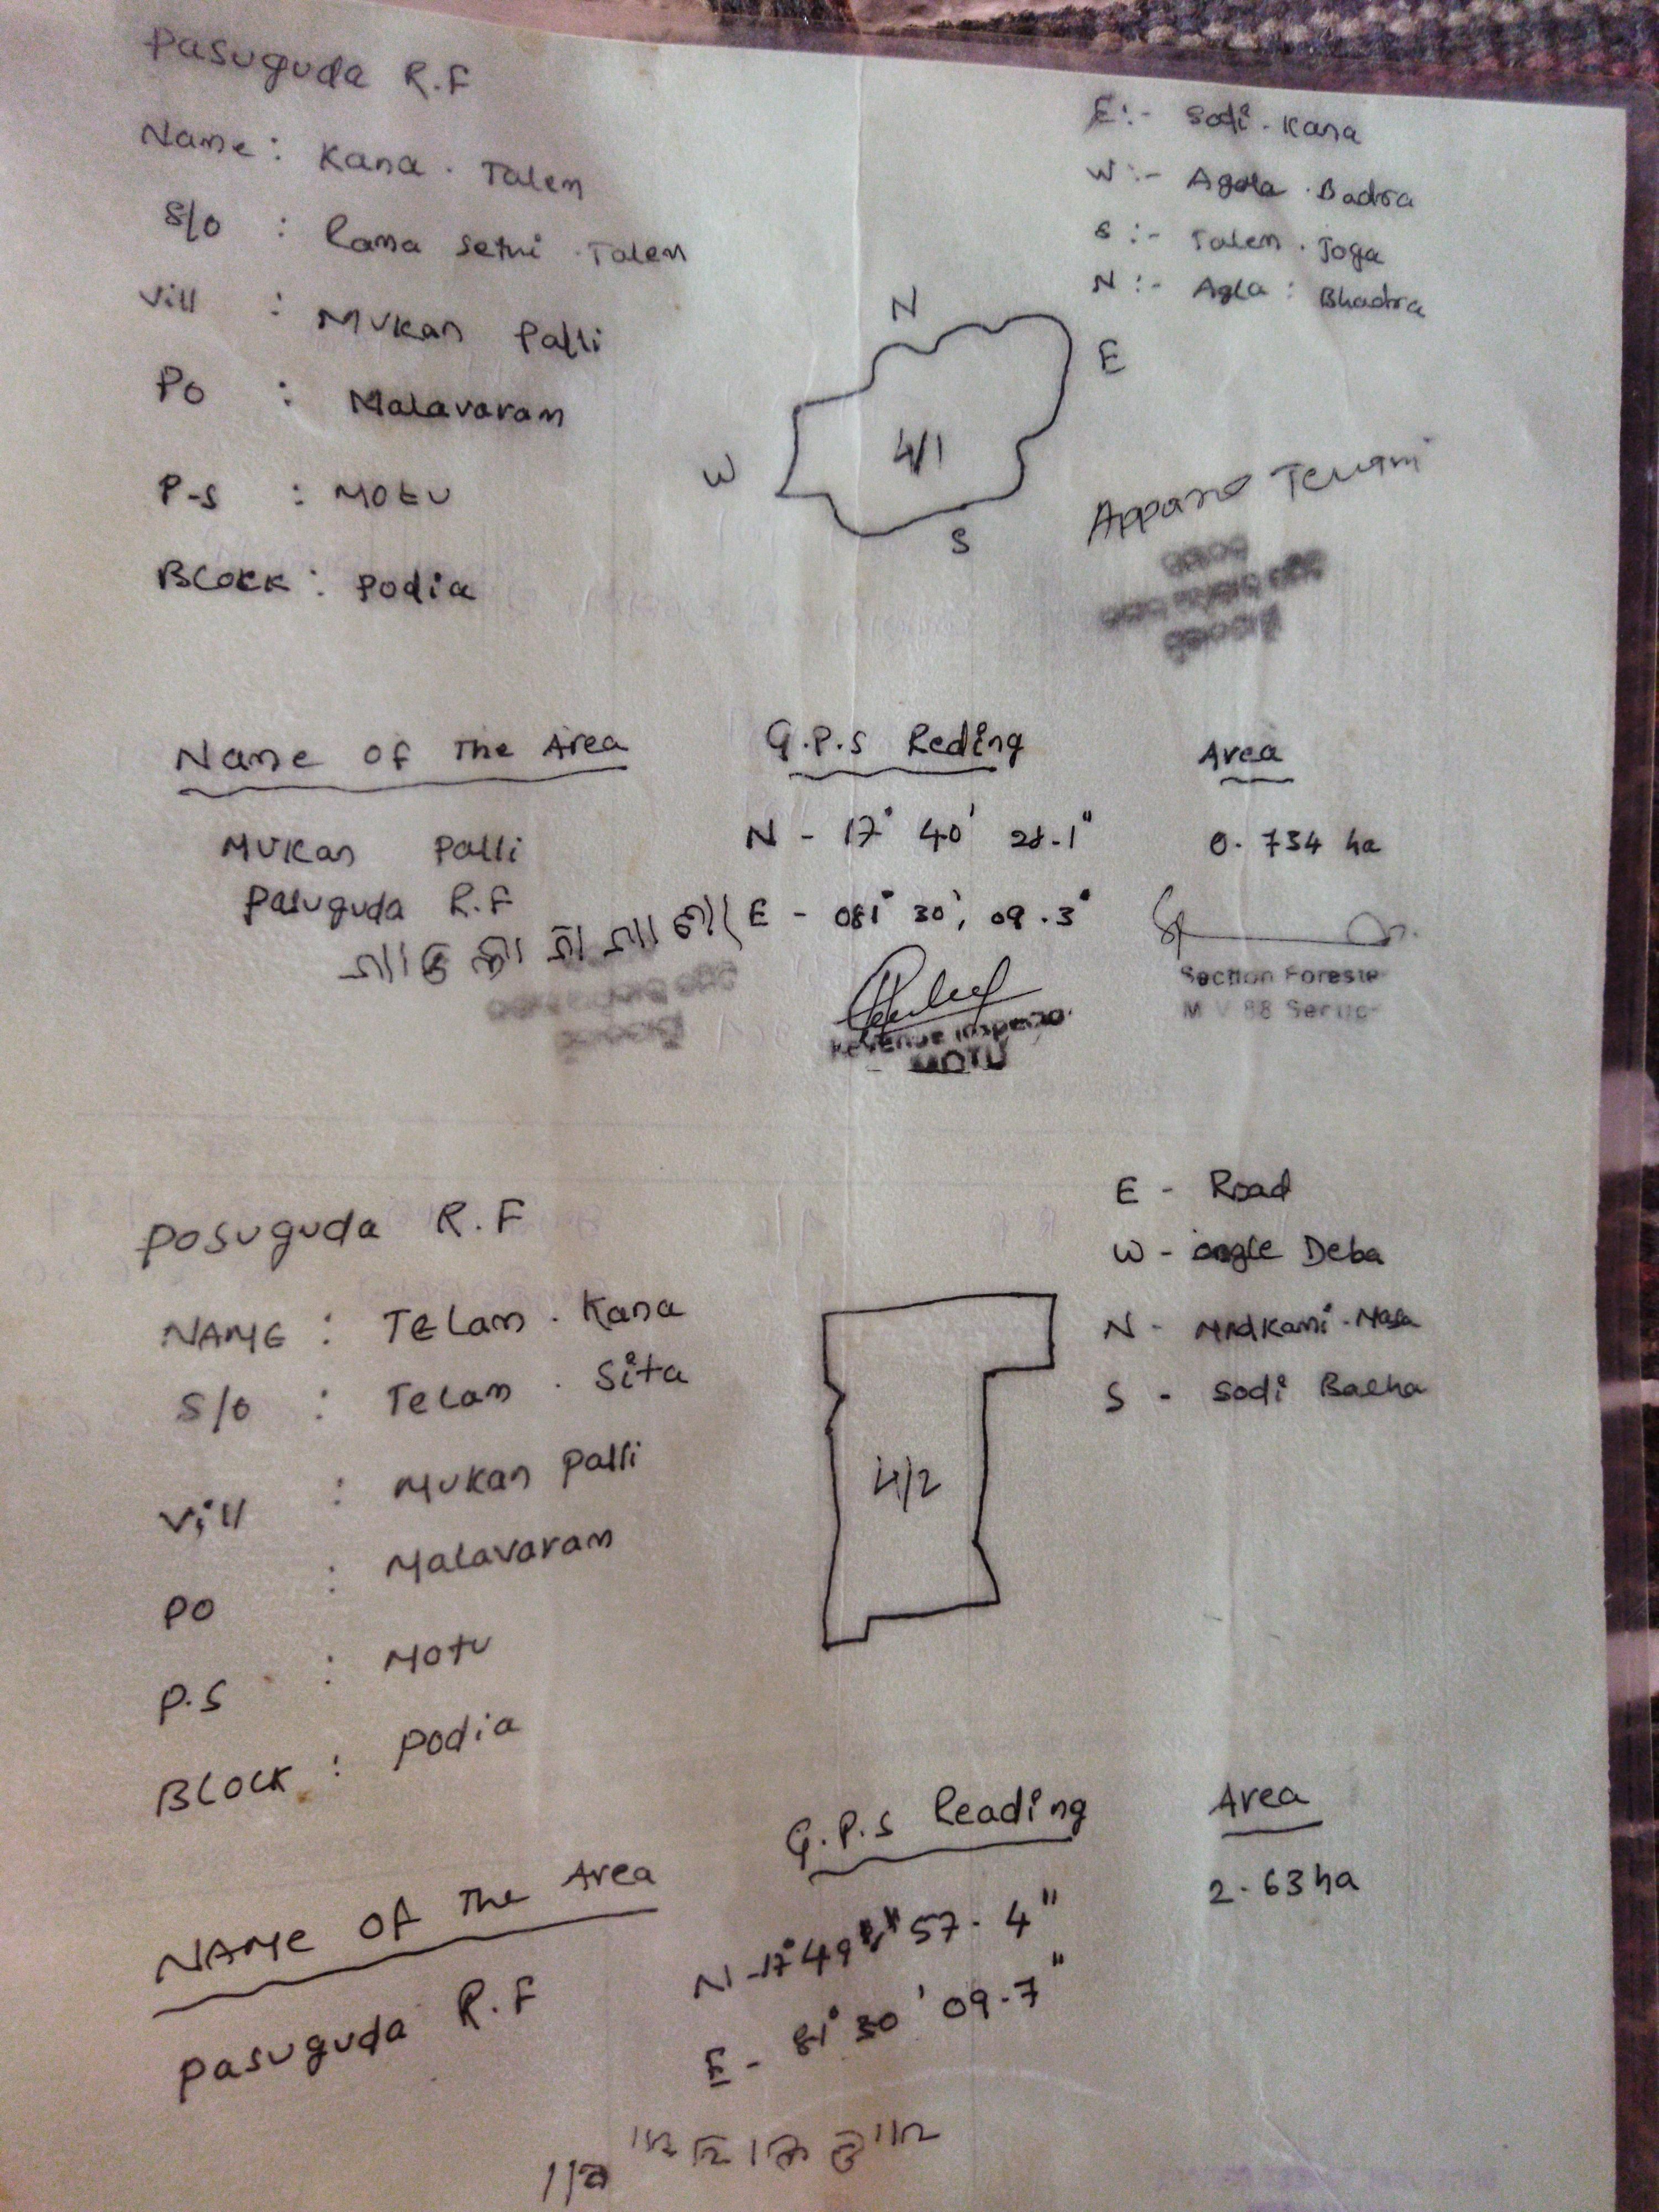 Pasuguda R.F
Name : Kana . Talen
S/o : Rama Setui . Talen
Vill : MUKAN Palli
Po : Malavaram
P-S : MOTU
BLOCK : Podia
E :- Sodi . Kana
W :- Agala . Badra
S :- Talem . Joga
N :- Agla : Bhadra
N
E
W
S
4/1
Apparao Telami
Name of The Area
MUKAN Palli
Pasuguda R.F
G.P.S Reding
N - 17° 40' 28.1"
E - 081° 30', 09.3"
Area
0.734 ha
Revenue Inspecto
MOTU
Section Foreste
M V 88 Sectio
Posuguda R.F
NAME : TELAM . Kana
S/o : Telam . Sita
Vill : MUKAN Palli
PO : Malavaram
P.S : Motu
BLOCK : Podia
E - Road
W - Deba
N - Madkami
S - Sodi
4/2
NAME OF The Area
Pasuguda R.F
G.P.S Reading
N - 17° 49' 57.4"
E - 81° 30' 09.7"
Area
2.63 ha